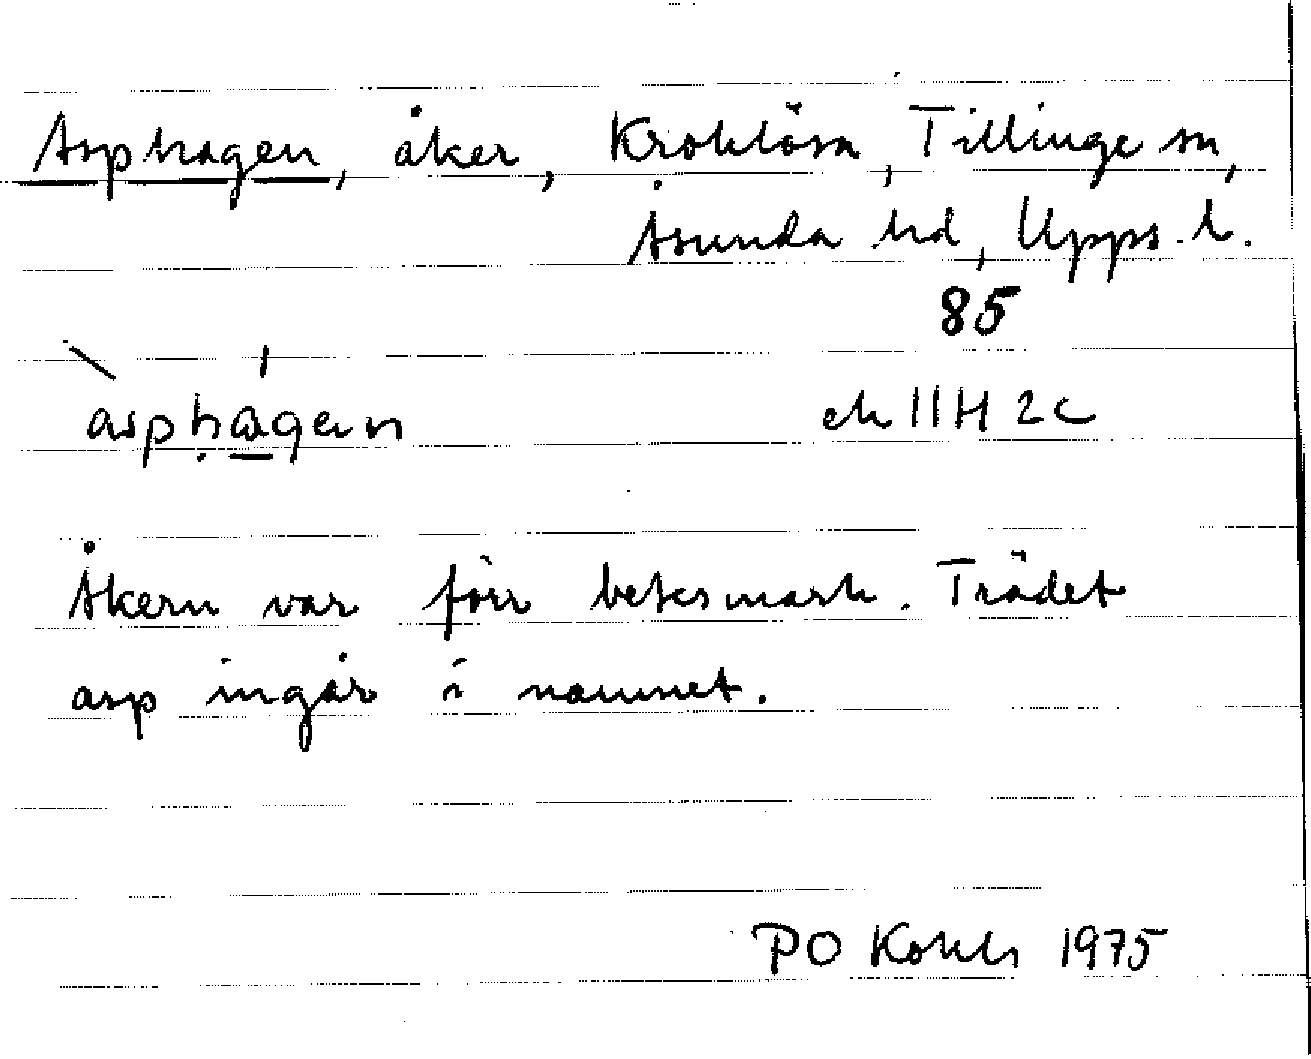 Asphagen, åker, Kroklösa, Tillinge sn,
Åsunda hd, Upps. l.
85
àsphágen
ek 11H 2c
Åkern var förr betesmark. Trädet
asp ingår i namnet.
PO 1975